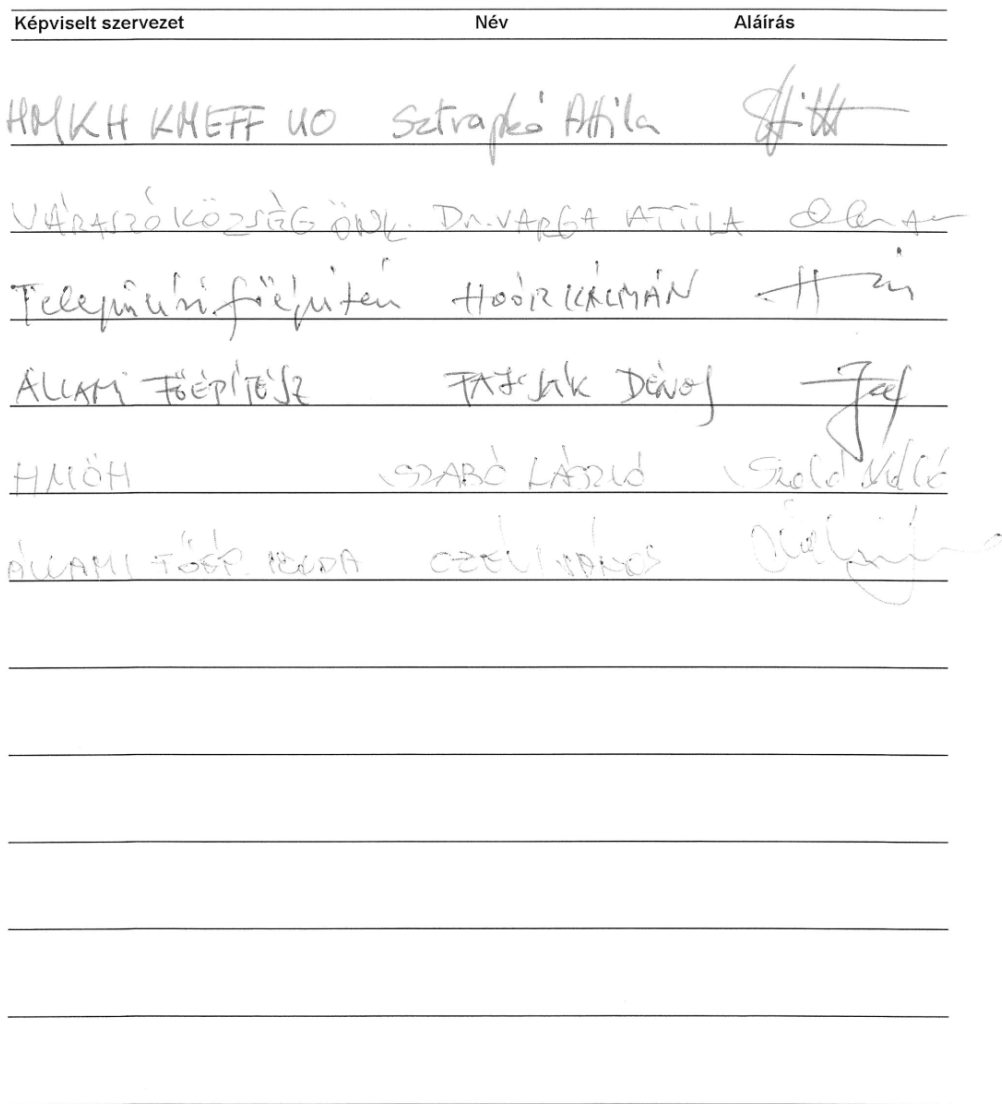 Képviselt szervezet Név Aláírás
HMKH KMEFF UO Sztrapkó Attila
VÁRASZÓ KÖZSÉG ÖNK. Dr. VARGA ATTILA
Települési főépítész HOÓR KÁLMÁN
ÁLLAMI FŐÉPÍTÉSZ FAJCSÁK DÉNES
HMÖH SZABÓ LÁSZLÓ Szabó László
ÁLLAMI FŐÉP. IRODA